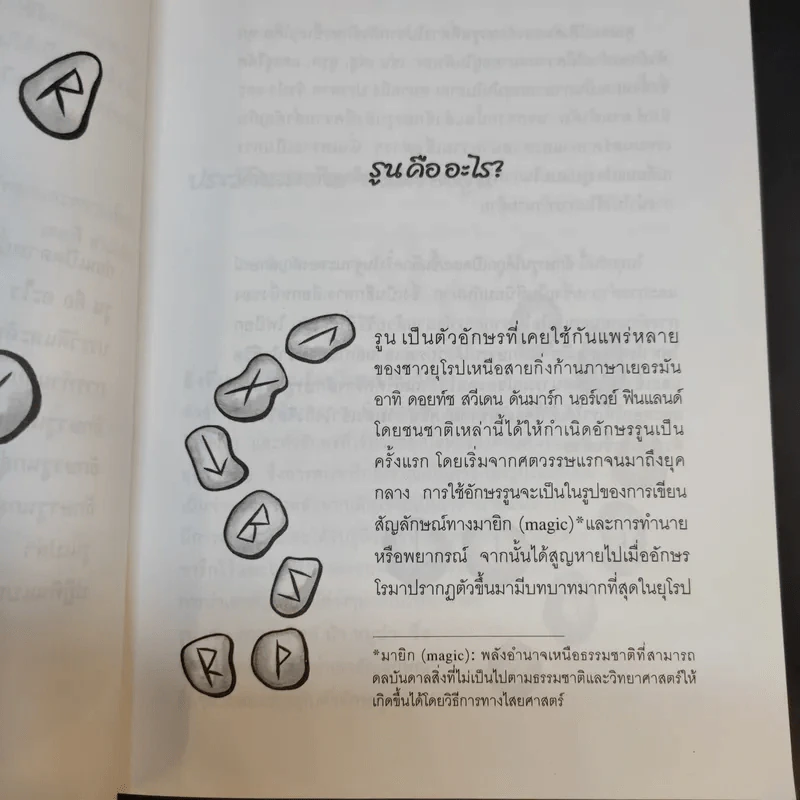 รูน คือ อะไร?
รูน เป็นตัวอักษรที่เคยใช้กันแพร่หลาย
ของชาวยุโรปเหนือสายกิ่งก้านภาษาเยอรมัน
อาทิ ดอยท์ช สวีเดน ดันมาร์ก นอร์เวย์ ฟินแลนด์
โดยชนชาติเหล่านี้ได้ให้กำเนิดอักษรรูนเป็น
ครั้งแรก โดยเริ่มจากศตวรรษแรกจนมาถึงยุค
กลาง การใช้อักษรรูนจะเป็นในรูปของการเขียน
สัญลักษณ์ทางมายิก (magic)*และการทำนาย
หรือพยากรณ์ จากนั้นได้สูญหายไปเมื่ออักษร
โรมาปรากฏตัวขึ้นมามีบทบาทมากที่สุดในยุโรป
*มายิก (magic): พลังอำนาจเหนือธรรมชาติที่สามารถ
ดลบันดาลสิ่งที่ไม่เป็นไปตามธรรมชาติและวิทยาศาสตร์ให้
เกิดขึ้นได้โดยวิธีการทางไสยศาสตร์